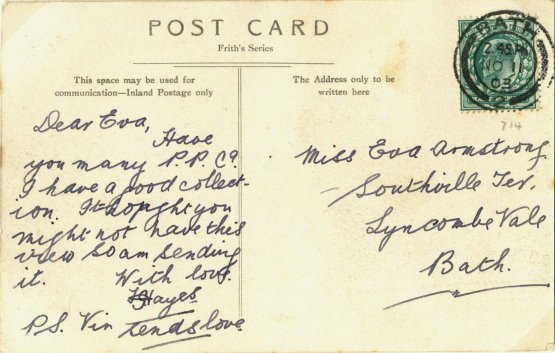 POST CARD
Frith's Series
This space may be used for
communication—Inland Postage only
The Address only to be
written here
BATH
2.45 PM
NO 1
03
714
Dear Eva,
Have
you many P.P.C's.
I have a good collect-
ion. I thought you
might not have this
view so am sending
it. With love.
Hayes
P.S. Vin sends love
Miss Eva Armstrong
Southville Ter.
Lyncombe Vale
Bath.